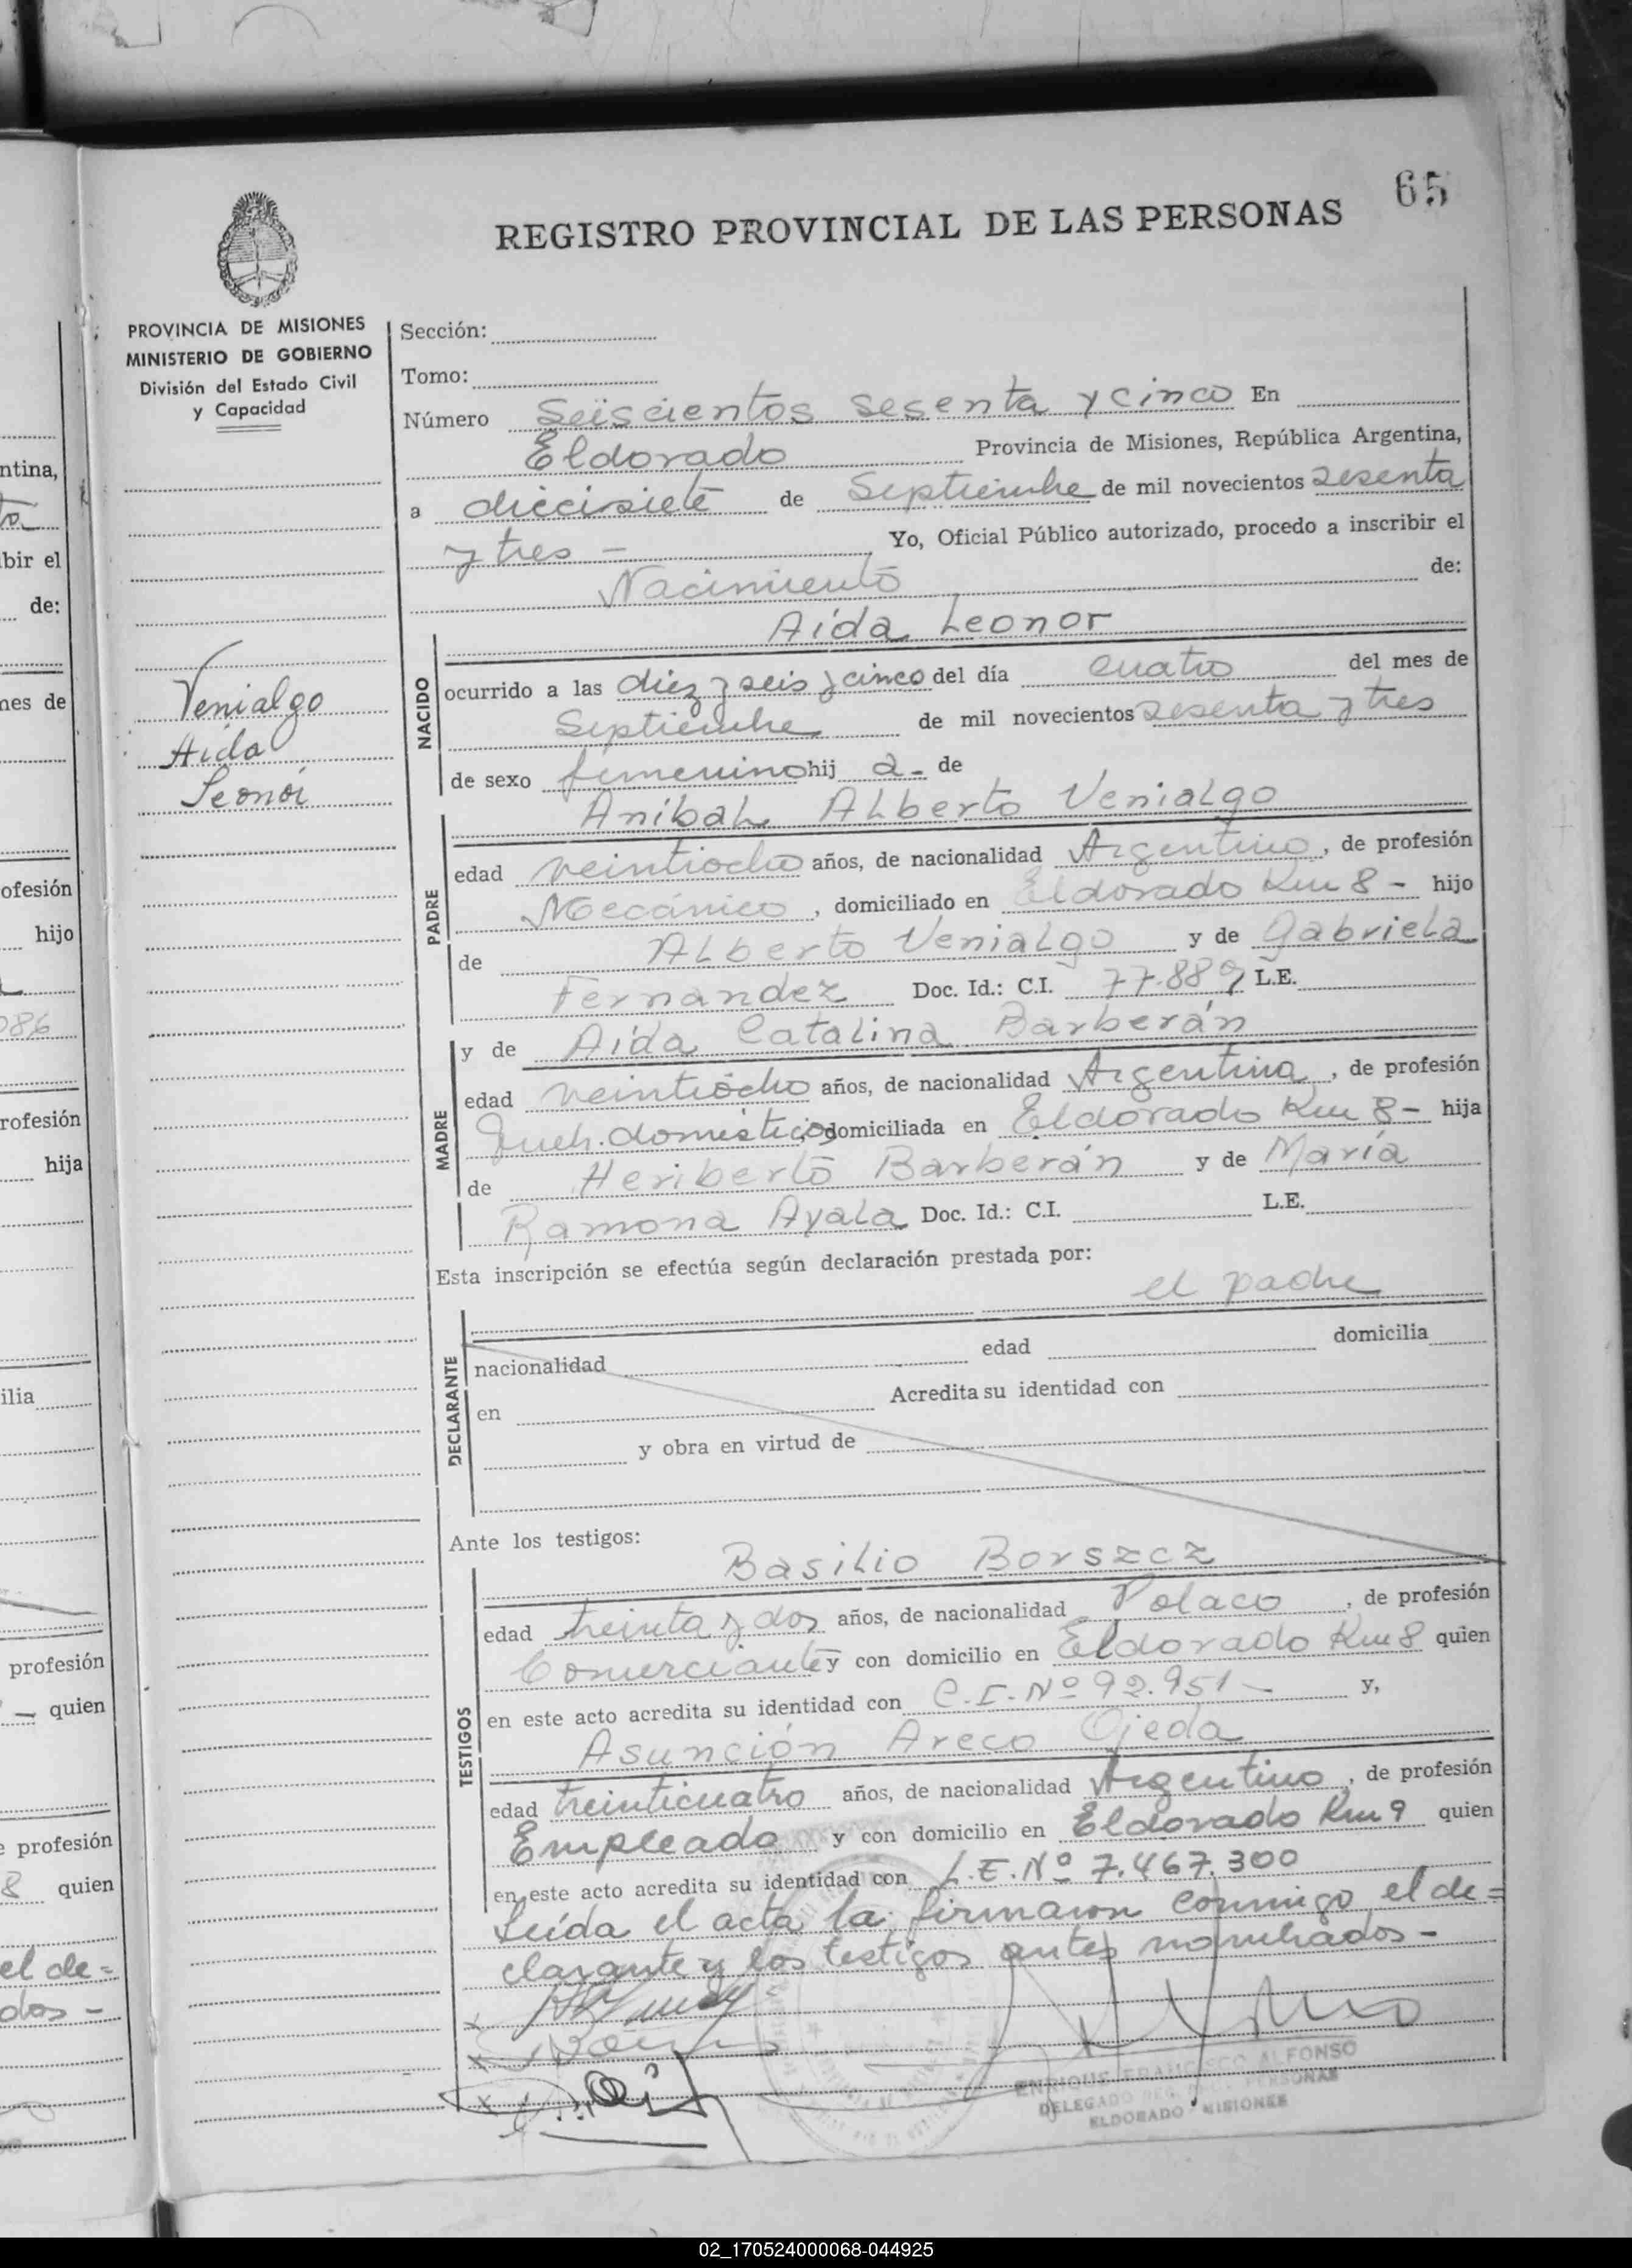 65
REGISTRO PROVINCIAL DE LAS PERSONAS
PROVINCIA DE MISIONES
MINISTERIO DE GOBIERNO
División del Estado Civil
y Capacidad
Venialgo
Aida
Leonor
Sección:
Tomo:
Número Seiscientos sesenta y cinco En
Eldorado Provincia de Misiones, República Argentina,
a diecisiete de Septiembre de mil novecientos sesenta
y tres - Yo, Oficial Público autorizado, procedo a inscribir el
Nacimiento de:
Aída Leonor
NACIDO
ocurrido a las diez y seis y cinco del día cuatro del mes de
Septiembre de mil novecientos sesenta y tres
de sexo femenino hij a - de
Anibal Alberto Venialgo
PADRE
edad veintiocho años, de nacionalidad Argentino, de profesión
Mecánico, domiciliado en Eldorado Km 8 - hijo
de Alberto Venialgo y de Gabriela
Fernandez Doc. Id.: C.I. 77.889 L.E.
y de Aída Catalina Barberán
MADRE
edad veintiocho años, de nacionalidad Argentina, de profesión
Queh. domésticos domiciliada en Eldorado Km 8 - hija
de Heriberto Barberán y de María
Ramona Ayala Doc. Id.: C.I. L.E.
Esta inscripción se efectúa según declaración prestada por:
el padre
DECLARANTE
nacionalidad edad domicilia
en Acredita su identidad con
y obra en virtud de
Ante los testigos:
Basilio Borszcz
TESTIGOS
edad treinta y dos años, de nacionalidad Polaco, de profesión
Comerciante y con domicilio en Eldorado Km 8 quien
en este acto acredita su identidad con C.I. Nº 92.951 - y,
Asunción Areco Ojeda
edad treinticuatro años, de nacionalidad Argentino, de profesión
Empleado y con domicilio en Eldorado Km 9 quien
en este acto acredita su identidad con L.E. Nº 7.467.300
Leída el acta la firmaron conmigo el de=
clarante y los testigos antes nombrados -
ENRIQUE FRANCISCO ALFONSO
DELEGADO REG. PROV. PERSONAS
ELDORADO - MISIONES
ntina,
bir el
de:
mes de
ofesión
hijo
086
rofesión
hija
ilia
profesión
quien
profesión
8 quien
el de=
dos -
02_170524000068-044925